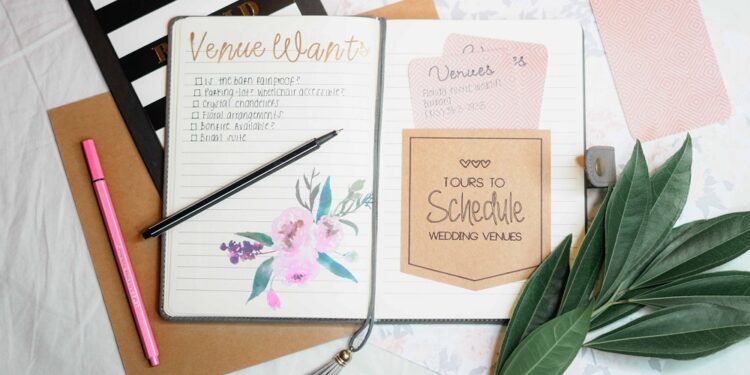 Venue Wants
Is the barn rainproof?
Parking-lots wheelchair accessible?
Crystal chandeliers
Floral arrangements
Bonfire Available?
Bridal suite
Venues
's
TOURS TO
Schedule
WEDDING VENUES